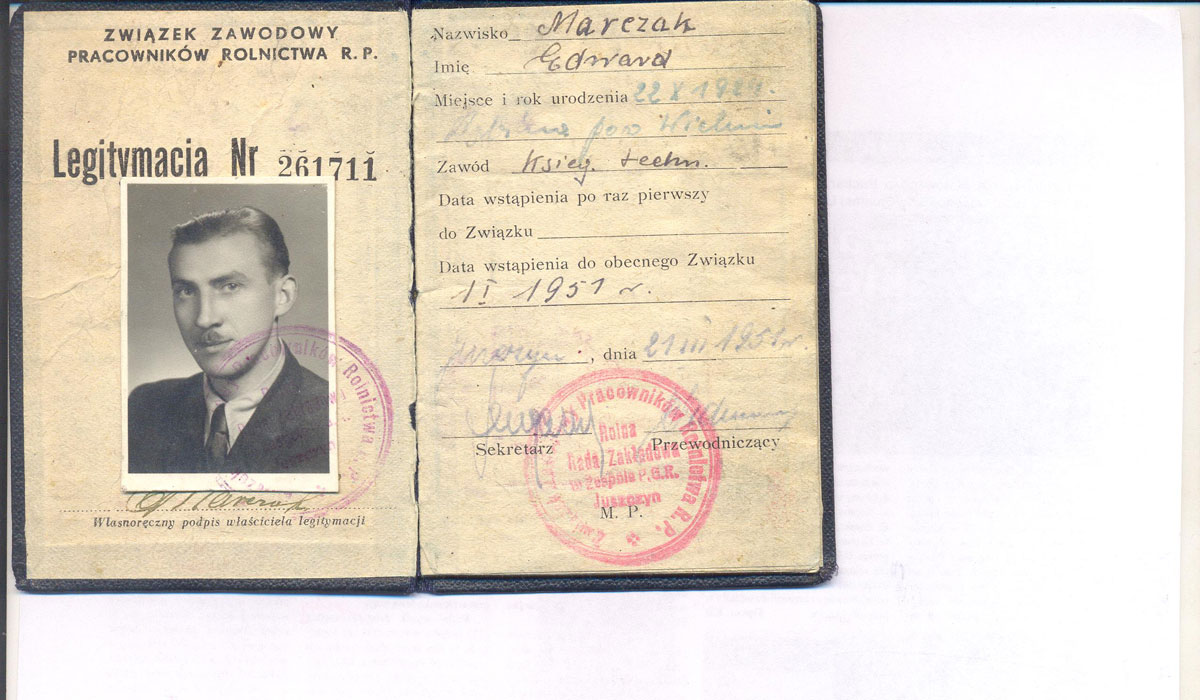 ZWIĄZEK ZAWODOWY
PRACOWNIKÓW ROLNICTWA R. P.
Legitymacja Nr 261711
Własnoręczny podpis właściciela legitymacji
Nazwisko Marczak
Imię Edward
Miejsce i rok urodzenia 22 X
pow Wieluń
Zawód Księg. techn.
Data wstąpienia po raz pierwszy
do Związku
Data wstąpienia do obecnego Związku
1 I 1951 r.
, dnia 21 III 1951 r.
Sekretarz Przewodniczący
Pracowników Rolnictwa R. P.
Rolna
Rada Zakładowa
w Zespole P.G.R.
Juszczyn
M. P.